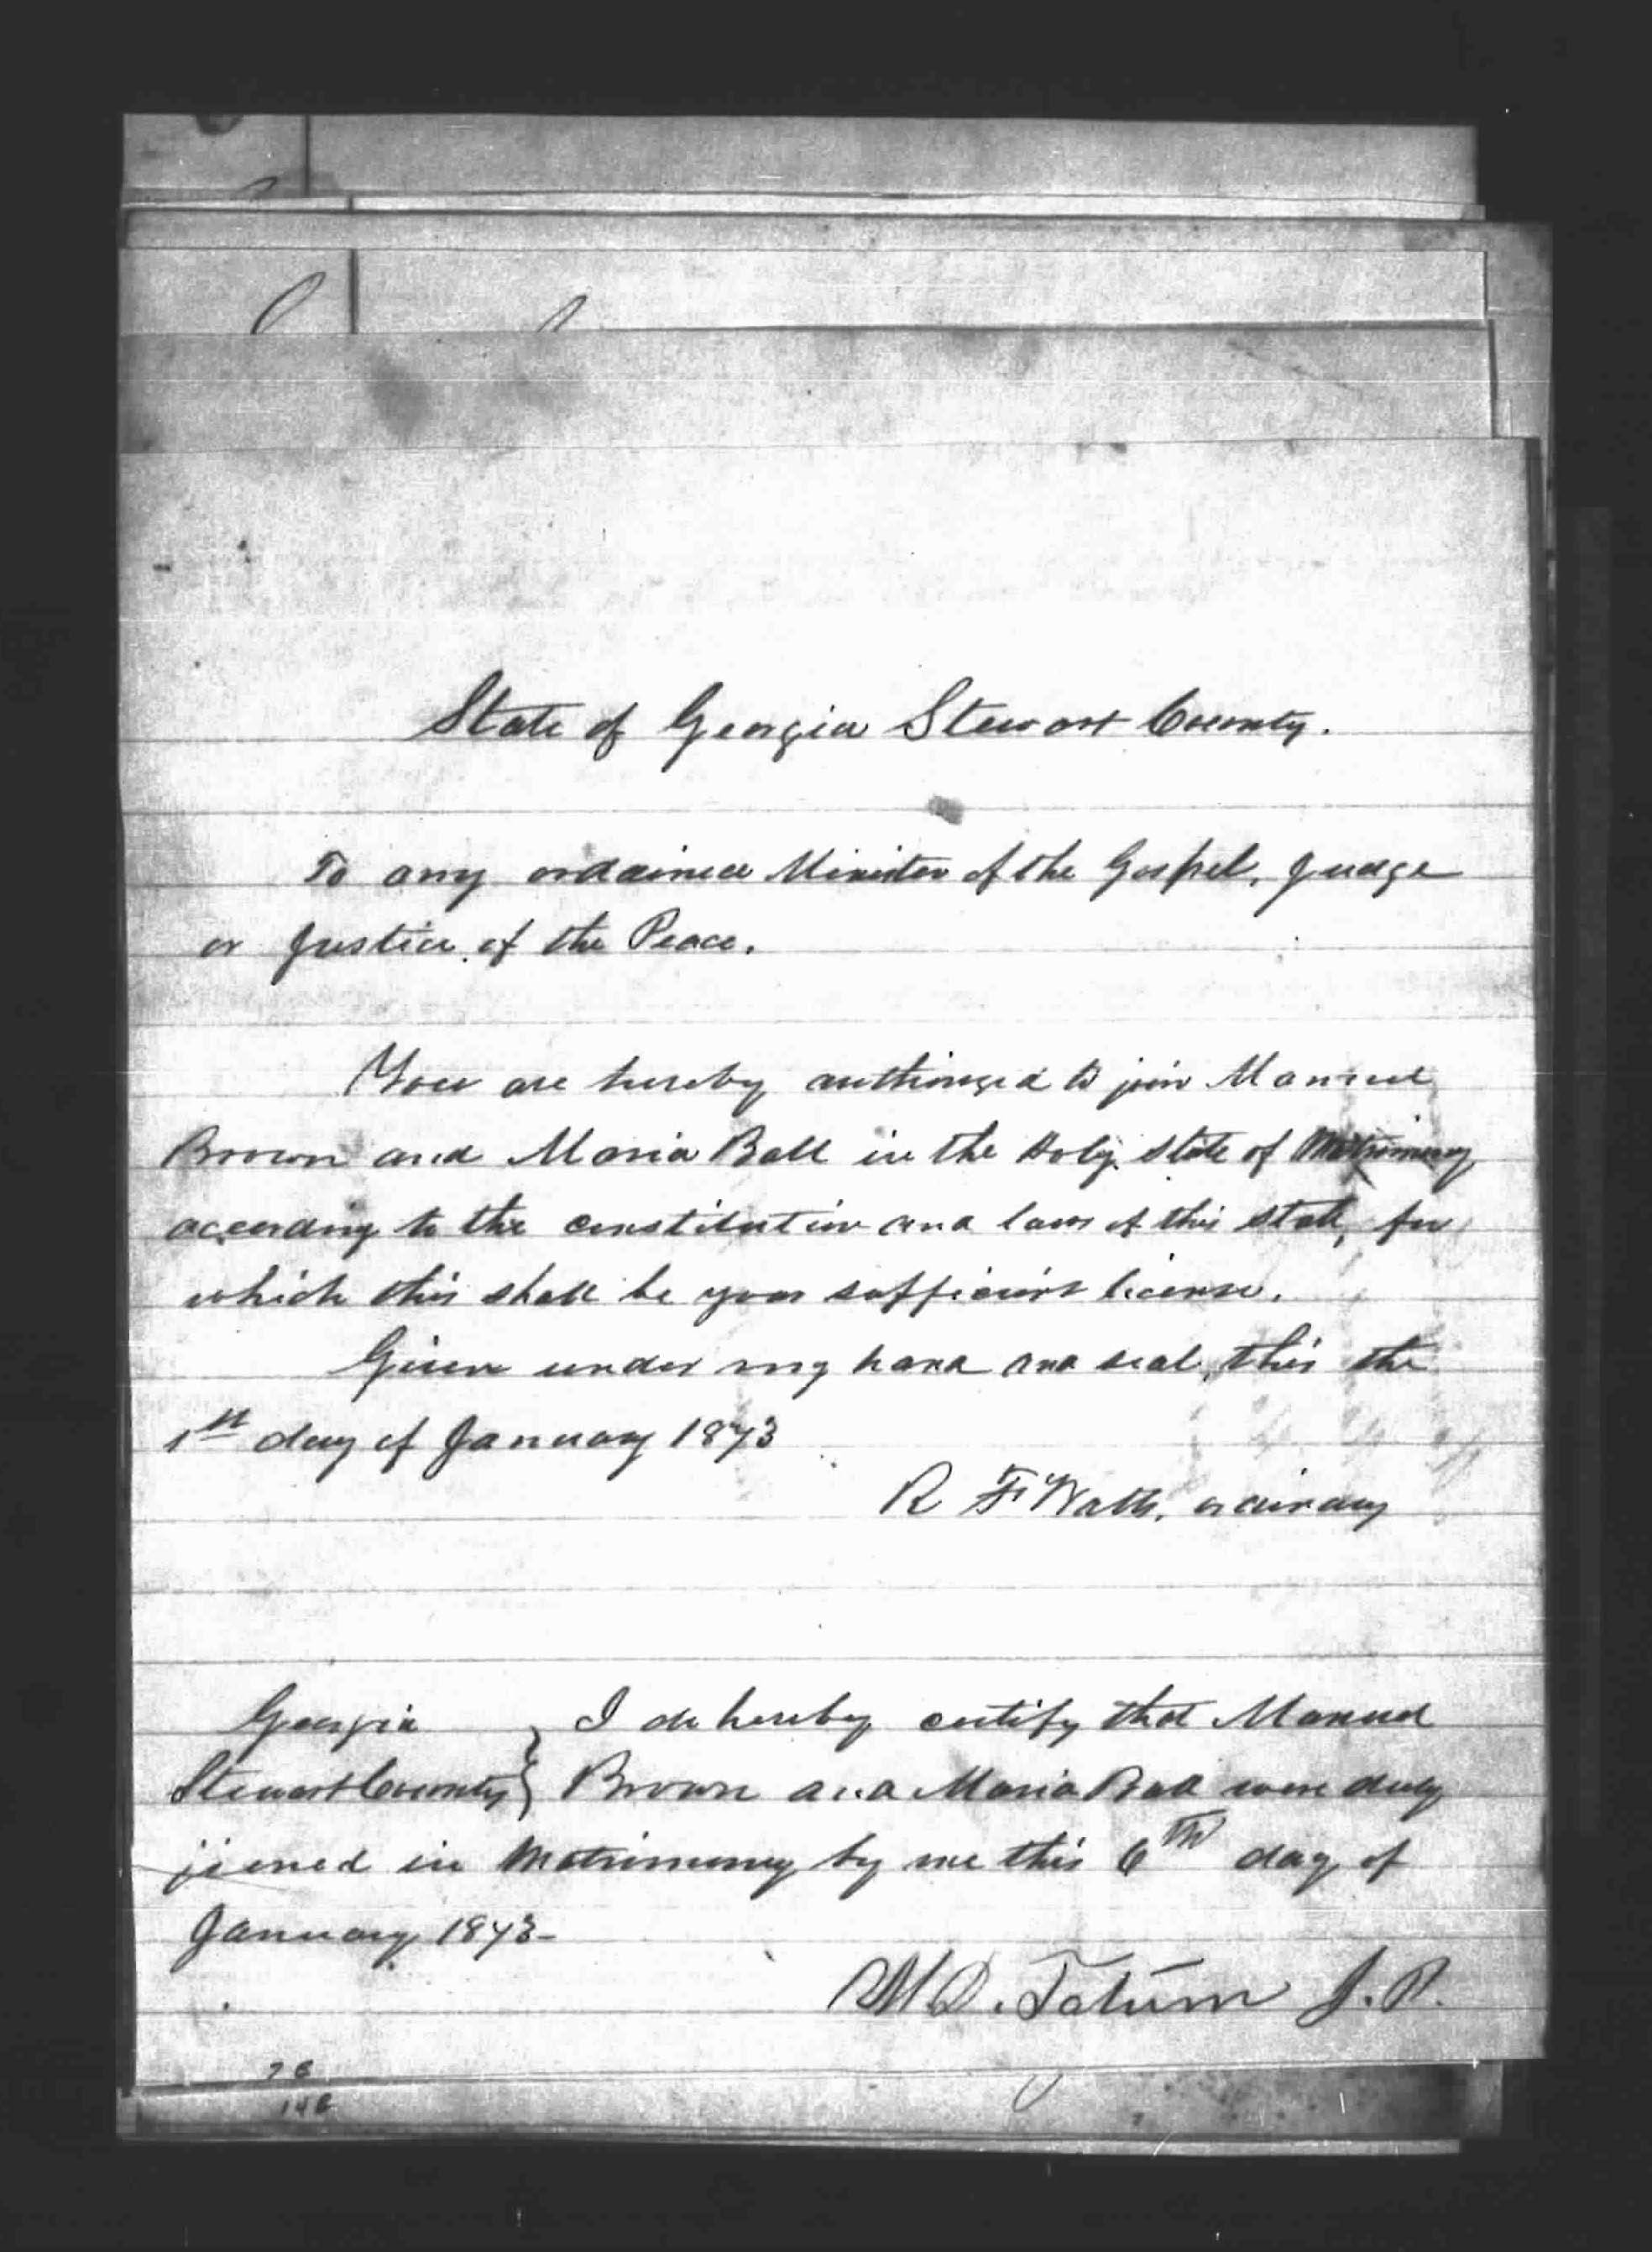 State of Georgia Stewart County.
To any ordained Minister of the Gospel, Judge
or Justice of the Peace.
You are hereby authorized to join Manuel
Brown and Maria Ball in the Holy state of Matrimony
according to the constitution and laws of this state, for
which this shall be your sufficient license.
Given under my hand and seal, this the
1st day of January 1873
R F Watts, ordinary
Georgia } I do hereby certify that Manuel
Stewart County } Brown and Maria Ball were duly
joined in Matrimony by me this 6th day of
January 1873-
M D. Tatum J. P.